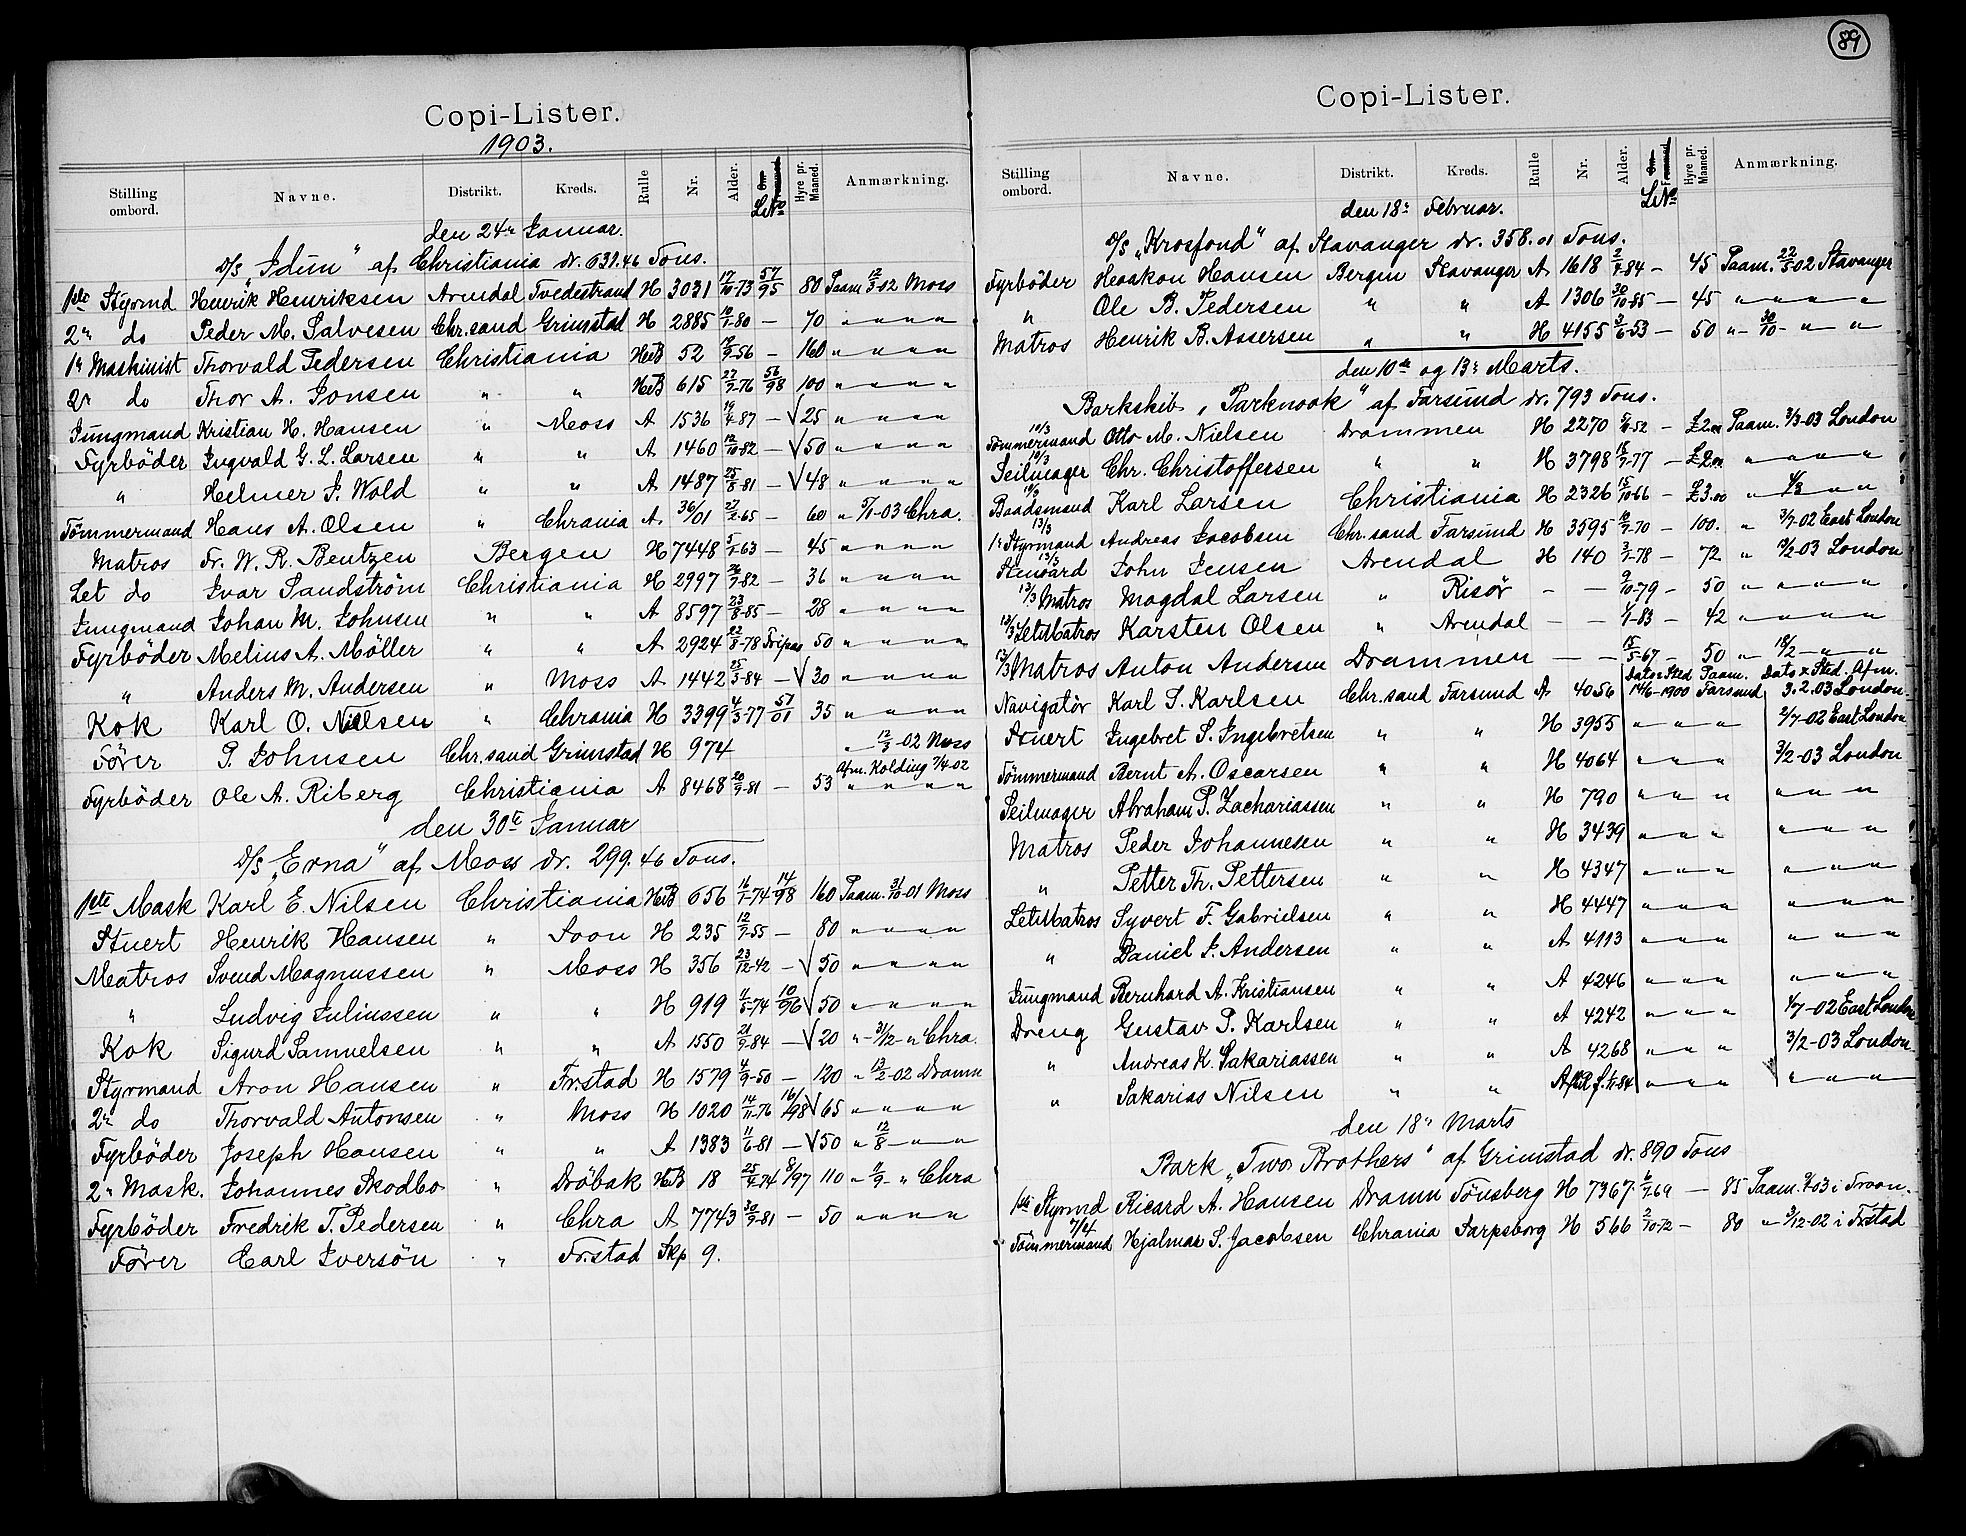 89
Copi-Lister.
1903.
Stilling ombord. Navne. Distrikt. Kreds. Rulle Nr. Alder. Om Fremmed. LtNo Hyre pr. Maaned. Anmærkning.
den 24r Januar.
D/S „Idun" af Christiania dr. 631.46 Tons.
1ste Styrmd Henrik Henriksen Arendal Tvedestrand H 3031 17/10-73 57/95 80 Paam 12/3-02 Moss
2n do Peder M. Salvesen Chr.sand Grimstad H 2885 10/1-80 — 70 " " " "
1n Maskinist Thorvald Pedersen Christiania HB 52 12/9-56 — 160 " " " "
2n do Thor A. Jonsen " " HB 615 27/7-76 56/98 100 " " " "
Jungmand Kristian H. Hansen " Moss A 1536 14/4-87 — √ 25 " " " "
Fyrböder Ingvald G. L. Larsen " " A 1460 12/10-82 — √ 50 " " " "
" Helmer J. Wold " " A 1487 25/8-81 — √ 48 " " " "
Tömmermand Hans A. Olsen " Chrania A 36/01 27/2-65 — 60 " 5/1-03 Chra.
Matros Fr. W. R. Bentzen Bergen H 7448 5/1-63 — 45 " " " "
Let do Ivar Sandström Christiania H 2997 26/7-82 — 36 " " " "
Jungmand Johan M. Johnsen " " A 8597 23/8-85 — 28 " " " "
Fyrböder Melius A. Möller " " A 2924 22/8-78 Fripas 50 " " " "
" Anders M. Andersen " Moss A 1442 25/3-84 — √ 30 " " " "
Kok Karl O. Nilsen " Chrania H 3399 4/3-77 57/01 35 " " " "
Förer P. Johnsen Chr.sand Grimstad H 974 " 12/3-02 Moss
Afm. Kolding 7/4 02
Fyrböder Ole A. Riberg Christiania A 8468 20/9-81 — 53 " " " "
den 30te Januar
D/S „Erna" af Moss dr. 299.46 Tons.
1ste Mask Karl E. Nilsen Christiania HB 656 16/1-74 14/98 160 Paam. 31/10-01 Moss
Stuert Henrik Hansen " Soon H 235 12/7-55 — 80 " " " "
Matros Svend Magnussen " Moss H 356 23/12-42 — √ 50 " " " "
" Ludvig Juliussen " " H 919 11/5-74 10/96 √ 50 " " " "
Kok Sigurd Samuelsen " " A 1550 21/9-84 — √ 20 " 31/12 " Chra.
Styrmand Aron Hansen " Fr.stad H 1579 4/9-50 — 120 " 13/2-02 Dramn
2n do Thorvald Antonsen " Moss H 1020 14/11-76 16/98 √ 65 " " " "
Fyrböder Joseph Hansen " " A 1383 11/6-81 — √ 50 " 12/8 " "
2n Mask. Johannes Skodbo " Dröbak HB 18 25/4-74 8/97 110 " 2/9 " Chra
Fyrböder Fredrik T. Pedersen " Chra A 7743 30/9-81 — 50 " " " "
Förer Carl Iversön " Fr.stad Skp 9.
Copi-Lister.
Stilling ombord. Navne. Distrikt. Kreds. Rulle Nr. Alder. Om Fremmed. LtNo Hyre pr. Maaned. Anmærkning.
den 18n Februar.
D/S „Krosfond" af Stavanger dr. 358.01 Tons.
Fyrböder Haakon Hansen Bergen Stavanger A 1618 2/9-84 — 45 Paam. 22/5-02 Stavanger
" Ole B. Pedersen " " A 1306 30/10-85 — 45 " " " "
Matros Henrik B. Assersen " " H 4155 3/6-53 — 50 " 30/10 " "
den 10de og 13n Marts.
Barkskib „Parknook" af Farsund dr. 793 Tons.
10/3 Tömmermand Otto M. Nielsen Drammen H 2270 5/11-52 — £2.00 Paam. 3/3-03 London
10/3 Seilmager Chr. Christoffersen " " H 3798 12/7-77 — £2.00 " " " "
10/3 Baadsmand Karl Larsen Christiania H 2326 15/10-66 — £3.00 " 4/3 " "
13/3 1n Styrmand Andreas Jacobsen Chr.sand Farsund H 3595 10/7-70 — 100. " 3/7-02 East London
13/3 Steward John Jensen Arendal H 140 3/1-78 — 72 " 12/2-03 London
13/3 Matros Magdal Larsen " Risör — — 9/10-79 — 50 " " " "
13/3 LetMatros Karsten Olsen " Arendal — — 1/1-83 — 42 " " " "
13/3 Matros Anton Andersen Drammen — — 15/5-67 — 50 " 18/2 " "
Dato & Sted Paam. Dato & Sted. Afm.
Navigatör Karl S. Karlsen Chr.sand Farsund A 4056 14/6-1900 Farsund 3.2.03 London.
Stuert Ingebret S. Ingebretsen " " H 3955 " " " 2/7-02 East London
Tömmermand Bernt A. Oscarsen " " H 4064 " " " 3/2-03 London
Seilmager Abraham P. Zachariassen " " H 790 " " " " " "
Matros Peder Johannesen " " H 3439 " " " " " "
" Petter Th. Pettersen " " H 4347 " " " " " "
LetMatros Syvert F. Gabrielsen " " H 4447 " " " " " "
" Daniel J. Andersen " " A 4113 " " " " " "
Jungmand Bernhard A. Kristiansen " " A 4246 " " " " " "
Dreng Gustav P. Karlsen " " A 4242 " " " 4/7-02 East London
" Andreas K. Sakariassen " " A 4268 " " " 3/2-03 London
" Sakarias Nilsen " " " " " " " "
den 18n Marts
Bark „Two Brothers" af Grimstad dr. 890 Tons
1ste Styrmd Ricard A. Hansen Dramn Tönsberg H 7367 6/7-69 — 85 Paam. 9/2-03 i Troon.
7/4 Tömmermand Hjalmar S. Jacobsen Chrania Sarpsborg H 566 2/10-72 — 80 " 9/12-02 i Fr.stad